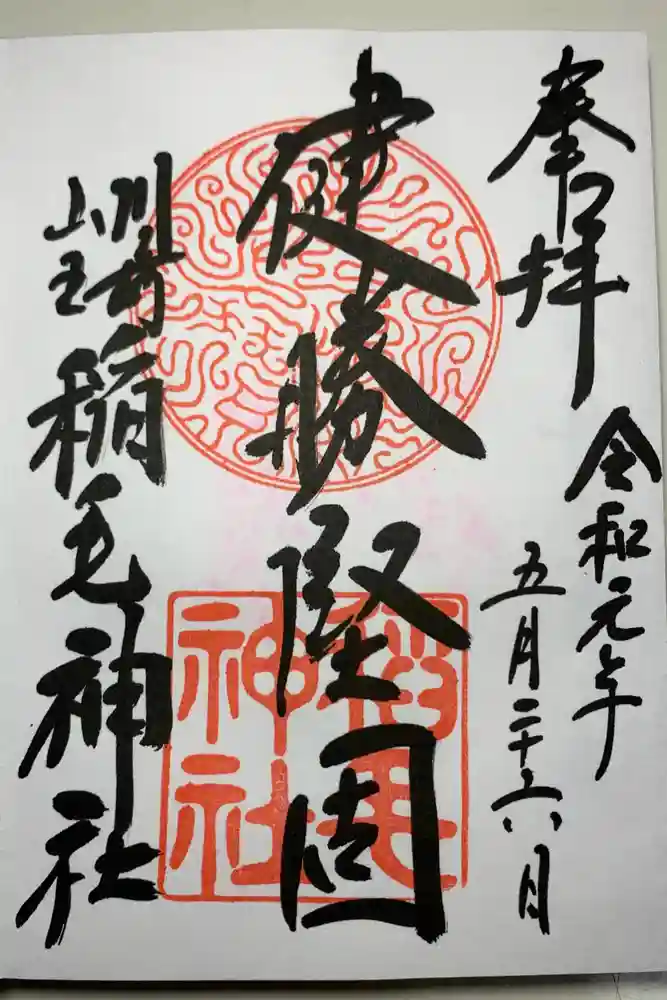 奉拝
令和元年
五月二十六日
健勝堅固
川崎山王
稲毛神社
稲毛
神社